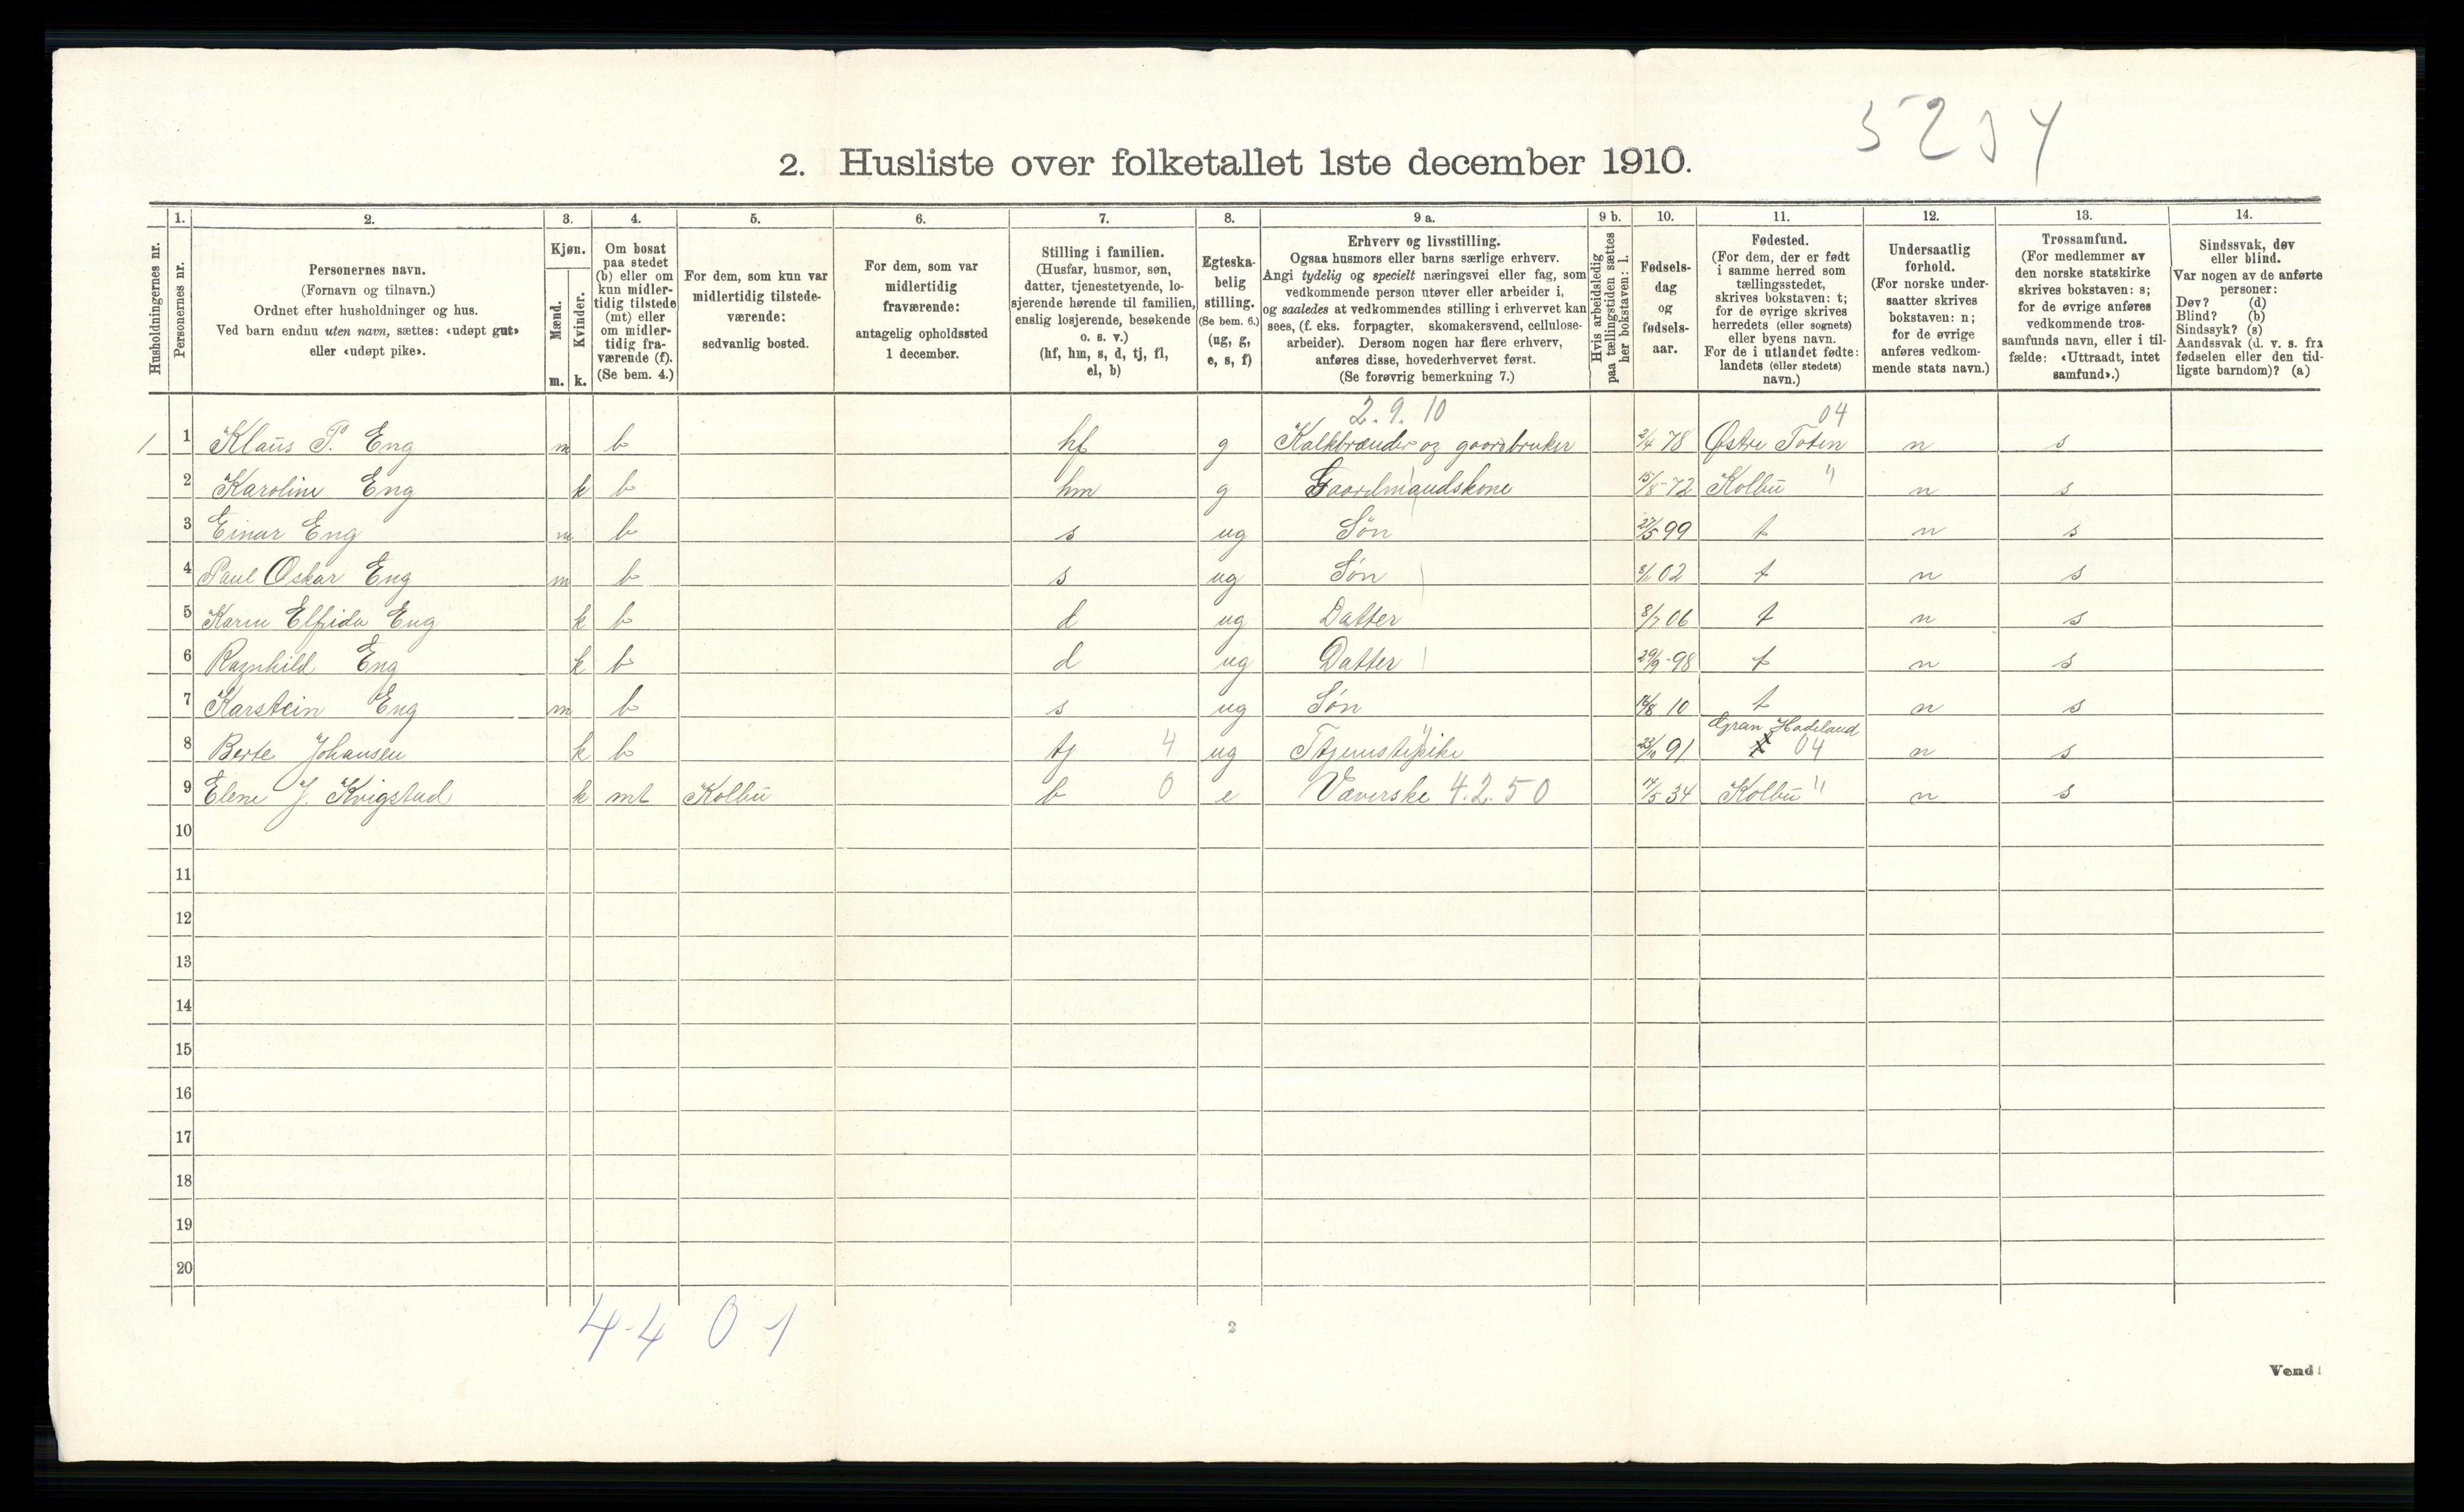 5234
2. Husliste over folketallet 1ste december 1910.
Husholdningernes nr.
1. Personernes nr.
2. Personernes navn. (Fornavn og tilnavn.) Ordnet efter husholdninger og hus. Ved barn endnu uten navn, sættes: «udøpt gut» eller «udøpt pike».
3. Kjøn. Mænd. m. Kvinder. k.
4. Om bosat paa stedet (b) eller om kun midlertidig tilstede (mt) eller om midlertidig fraværende (f). (Se bem. 4.)
5. For dem, som kun var midlertidig tilstedeværende: sedvanlig bosted.
6. For dem, som var midlertidig fraværende: antagelig opholdssted 1 december.
7. Stilling i familien. (Husfar, husmor, søn, datter, tjenestetyende, losjerende hørende til familien, enslig losjerende, besøkende o. s. v.) (hf, hm, s, d, tj, fl, el, b)
8. Egteskabelig stilling. (Se bem. 6.) (ug, g, e, s, f)
9 a. Erhverv og livsstilling. Ogsaa husmors eller barns særlige erhverv. Angi tydelig og specielt næringsvei eller fag, som vedkommende person utøver eller arbeider i, og saaledes at vedkommendes stilling i erhvervet kan sees, (f. eks. forpagter, skomakersvend, cellulosearbeider). Dersom nogen har flere erhverv, anføres disse, hovederhvervet først. (Se forøvrig bemerkning 7.)
9 b. Hvis arbeidsledig paa tællingstiden sættes her bokstaven: l.
10. Fødselsdag og fødselsaar.
11. Fødested. (For dem, der er født i samme herred som tællingsstedet, skrives bokstaven: t; for de øvrige skrives herredets (eller sognets) eller byens navn. For de i utlandet fødte: landets (eller stedets) navn.)
12. Undersaatlig forhold. (For norske undersaatter skrives bokstaven: n; for de øvrige anføres vedkommende stats navn.)
13. Trossamfund. (For medlemmer av den norske statskirke skrives bokstaven: s; for de øvrige anføres vedkommende trossamfunds navn, eller i tilfælde: «Uttraadt, intet samfund».)
14. Sindssvak, døv eller blind. Var nogen av de anførte personer: Døv? (d) Blind? (b) Sindssyk? (s) Aandssvak (d. v. s. fra fødselen eller den tidligste barndom)? (a)
2.9.10 04
1 1 Klaus P. Eng m b hf g Kalkbrænder og gaardbruker 2/4 78 Østre Toten n s
2 Karoline Eng k b hm g Gaardmandskone 15/8-72 Kolbu " n s
3 Einar Eng m b s ug Søn 27/5 99 t n s
4 Paul Oskar Eng m b s ug Søn 02 t n s
5 Karen Elfrida Eng k b d ug Datter 8/7 06 t n s
6 Ragnhild Eng k b d ug Datter 29/9-98 t n s
7 Karstein Eng m b s ug Søn 16/8 10 t n s
Gran Hadeland
8 Berte Johansen k b tj 4 ug Tjenestepike 23/10 91 t 04 n s
9 Elene J. Kvigstad k mt Kolbu b 0 e Væverske 4.2.50 17/5 34 Kolbu " n s
10
11
12
13
14
15
16
17
18
19
20
4-4 0 1
2
Vend!